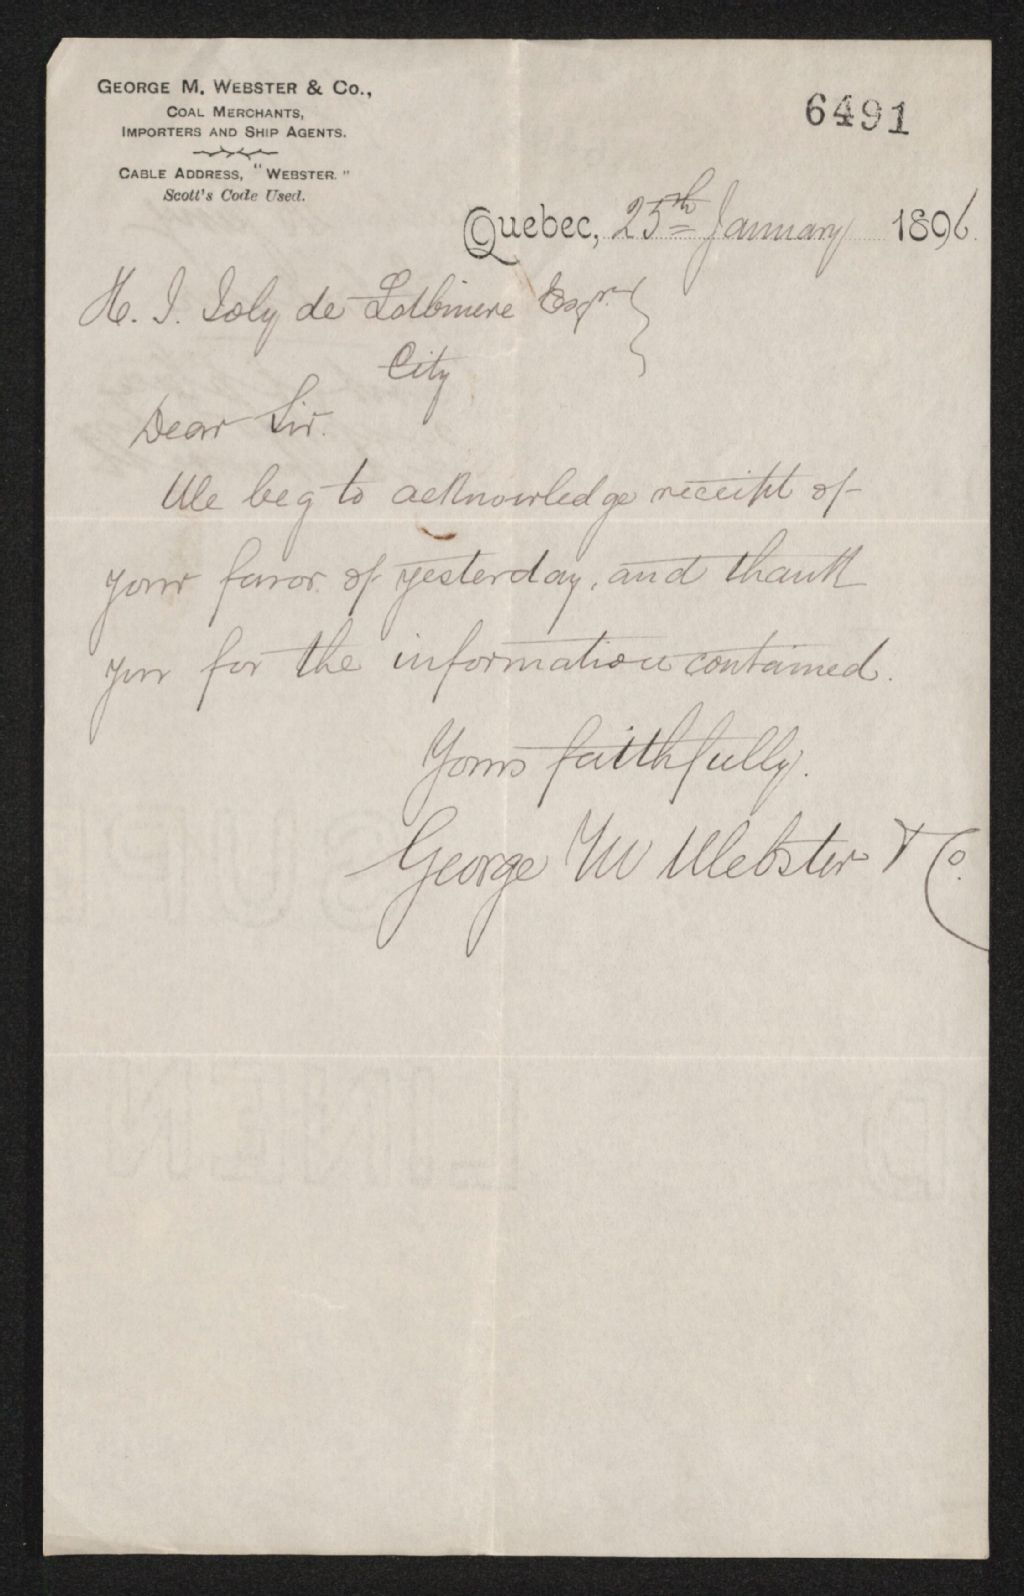 GEORGE M. WEBSTER & Co.,
COAL MERCHANTS,
IMPORTERS AND SHIP AGENTS.
CABLE ADDRESS, "WEBSTER."
Scott's Code Used.
6491
Quebec, 25th January 1896.
H. J. Joly de Lotbiniere Esqr.
City
Dear Sir.
We beg to acknowledge receipt of
your favor of yesterday, and thank
you for the information contained.
Yours faithfully.
George M Webster & Co.
SUPE
D LINEN